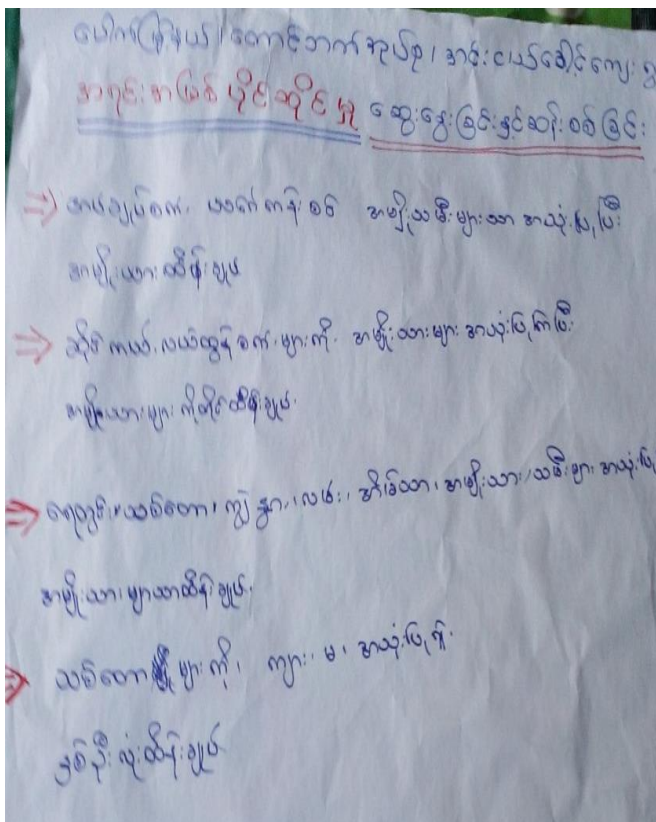 ပေါက်မြို့နယ်၊ တောင်ဘက်အုပ်စု၊ အင်းငယ်ခေါင်ကျေးရွ
အရင်းအမြစ်ပိုင်ဆိုင်မှု ဆွေးနွေးခြင်းနှင့်ဆန်းစစ်ခြင်း
အပ်ချုပ်စက်၊ အမျိုးသမီးများသာ အသုံးပြုပြီး
အမျိုးသားထိန်းချုပ်
ဆိုင်ကယ်၊ လယ်ထွန်စက်များကို အမျိုးသားများ အသုံးပြုကြပြီး
အမျိုးသားများကိုယ်တိုင်ထိန်းချုပ်
ရေတွင်း၊ သစ်တော၊ ကျွဲနွား၊ လမ်း၊ အိမ်သာ၊ အမျိုးသား၊ သမီးများ အသုံးပြု
အမျိုးသားများသာထိန်းချုပ်
သစ်တော များကို၊ ကျား၊ မ၊ အသုံးပြု၍
နှစ်ဦးလုံးထိန်းချုပ်